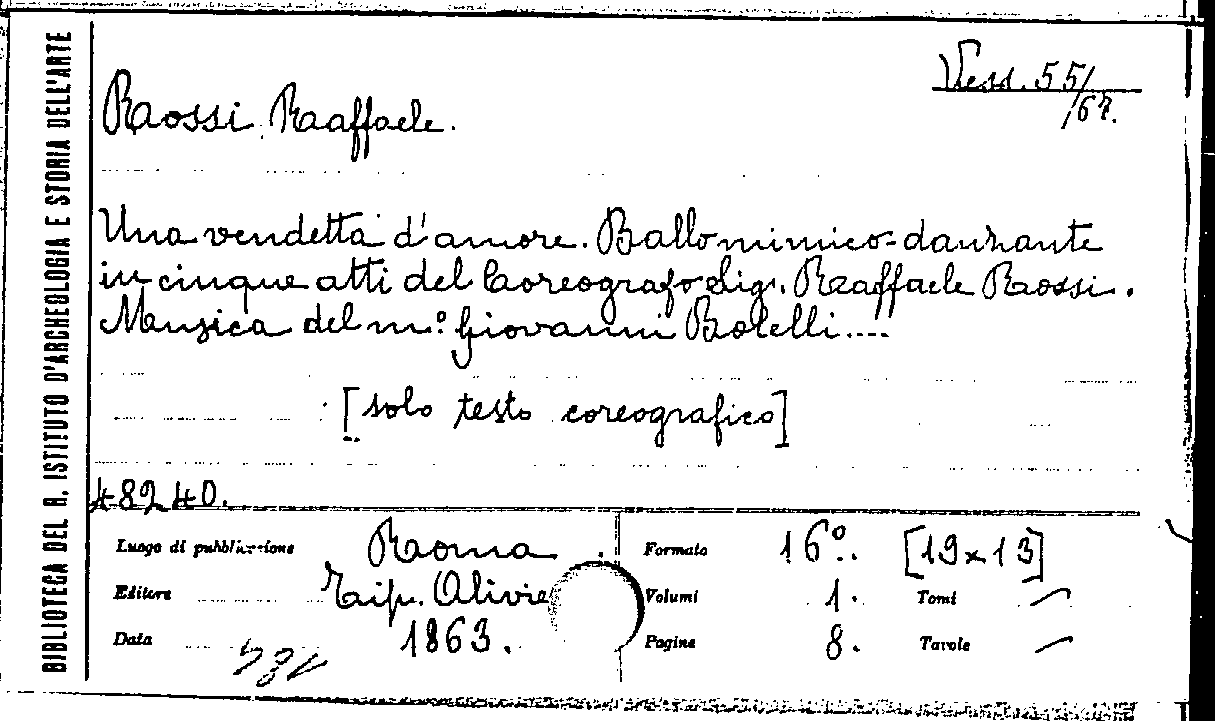 BIBLIOTECA DEL R. ISTITUTO D'ARCHEOLOGIA E STORIA DELL'ARTE
Vess. 55/67.
Rossi Raffaele.
Una vendetta d'amore. Ballo mimico-danzante
in cinque atti del Coreografo Sig. Raffaele Rossi.
Musica del m.º Giovanni Bolelli....
[solo testo coreografico]
48240.
Luogo di pubblicazione Roma Formato 16º. [19x13]
Editore Tip. Olivie Volumi 1. Tomi —
Data 1863. Pagine 8. Tavole —